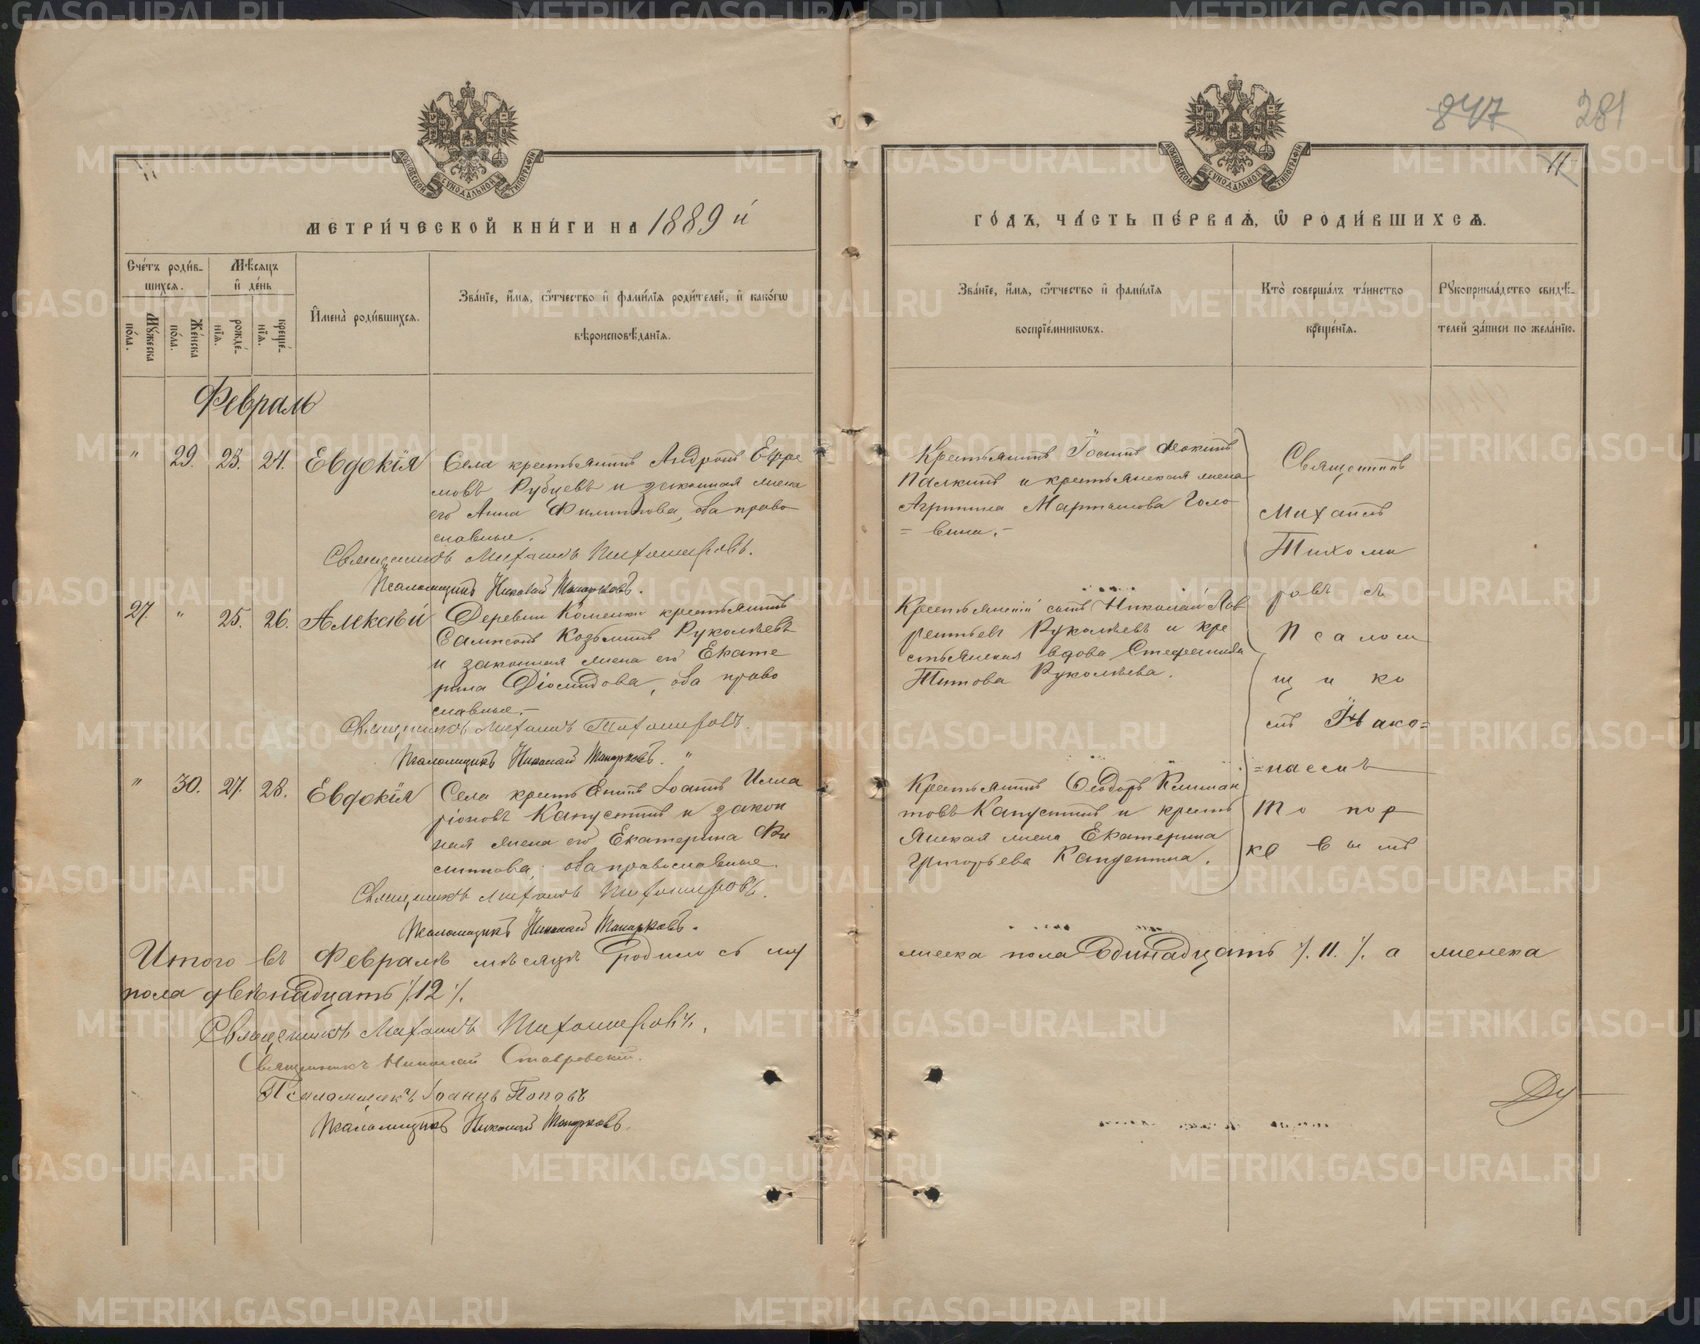 МЕТРИЧЕСКОЙ КНИГИ НА 1889 й
Счетъ родив-
шихся.
Мѣсяцъ
и день
Мужеска
пола.
Женска
пола.
рожде-
нія.
креще-
нія.
Имена родившихся.
Званіе, имя, отчество и фамилія родителей, и какого
вѣроисповѣданія.
Февраль
" 29. 23. 24. Евдокія
Села крестьянинъ Андрей Ефре
мовъ Рубцевъ и законная жена
его Анна Филиппова, оба право
славные.
Священникъ Михаилъ Тихомировъ.
Псаломщикъ Николай Топорковъ.
27. " 25. 26. Алексѣй
Деревни Каменки крестьянинъ
Сампсонъ Козьминъ Руколѣевъ
и законная жена его Екате
рина Діомидова, оба право
славные.
Священникъ Михаилъ Тихомировъ.
Псаломщикъ Николай Топорковъ.
" 30. 27. 28. Евдокія
Села крестьянинъ Іоаннъ Илла
ріоновъ Капустинъ и закон
ная жена его Екатерина Фи
липпова, оба православные.
Священникъ Михаилъ Тихомировъ.
Псаломщикъ Николай Топорковъ.
Итого въ Февралѣ мѣсяцѣ родилось му
пола двѣнадцать /.12./.
Священникъ Михаилъ Тихомировъ.
Священникъ Николай Ставровскій.
Псаломщикъ Іоаннъ Поповъ
Псаломщикъ Николай Топорковъ.
847 281
11
ГОДЪ, ЧАСТЬ ПЕРВАЯ, Ѡ РОДИВШИХСЯ.
Званіе, имя, отчество и фамилія
воспріемниковъ.
Кто совершалъ таинство
крещенія.
Рукоприкладство свидѣ-
телей записи по желанію.
Крестьянинъ Іоаннъ
Палкинъ и крестьянская жена
Агрипина Мартынова Голо
=вина.
Крестьянскій сынъ Николай Лав
рентьевъ Руколѣевъ и кре
стьянская вдова Стефанида
Титова Руколѣева.
Крестьянинъ Ѳеодоръ Климан
товъ Капустинъ и кресть
янская жена Екатерина
Григорьева Капустина.
Священникъ
Михаилъ
Тихоми
ровъ съ
Псалом
щико
мъ
То пор
ко вымъ
жеска пола одинадцать /.11./. а женска